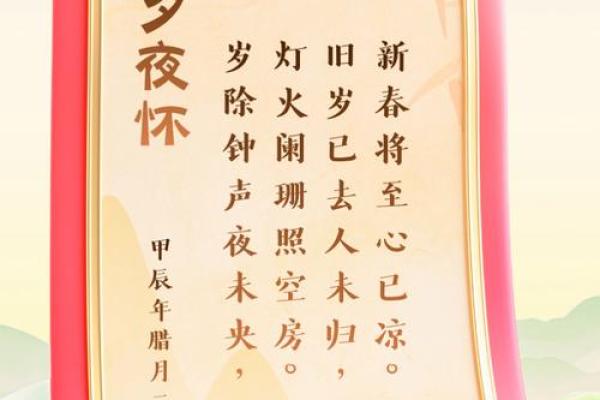 夜怀
甲辰年腊月
岁除钟声夜未央，
灯火阑珊照空房。
旧岁已去人未归，
新春将至心已凉。